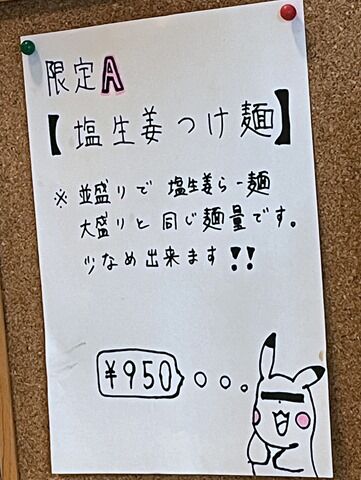 限定A
【塩生姜つけ麺】
※並盛りで 塩生姜らー麺
大盛りと同じ麺量です。
少なめ出来ます!!
¥950